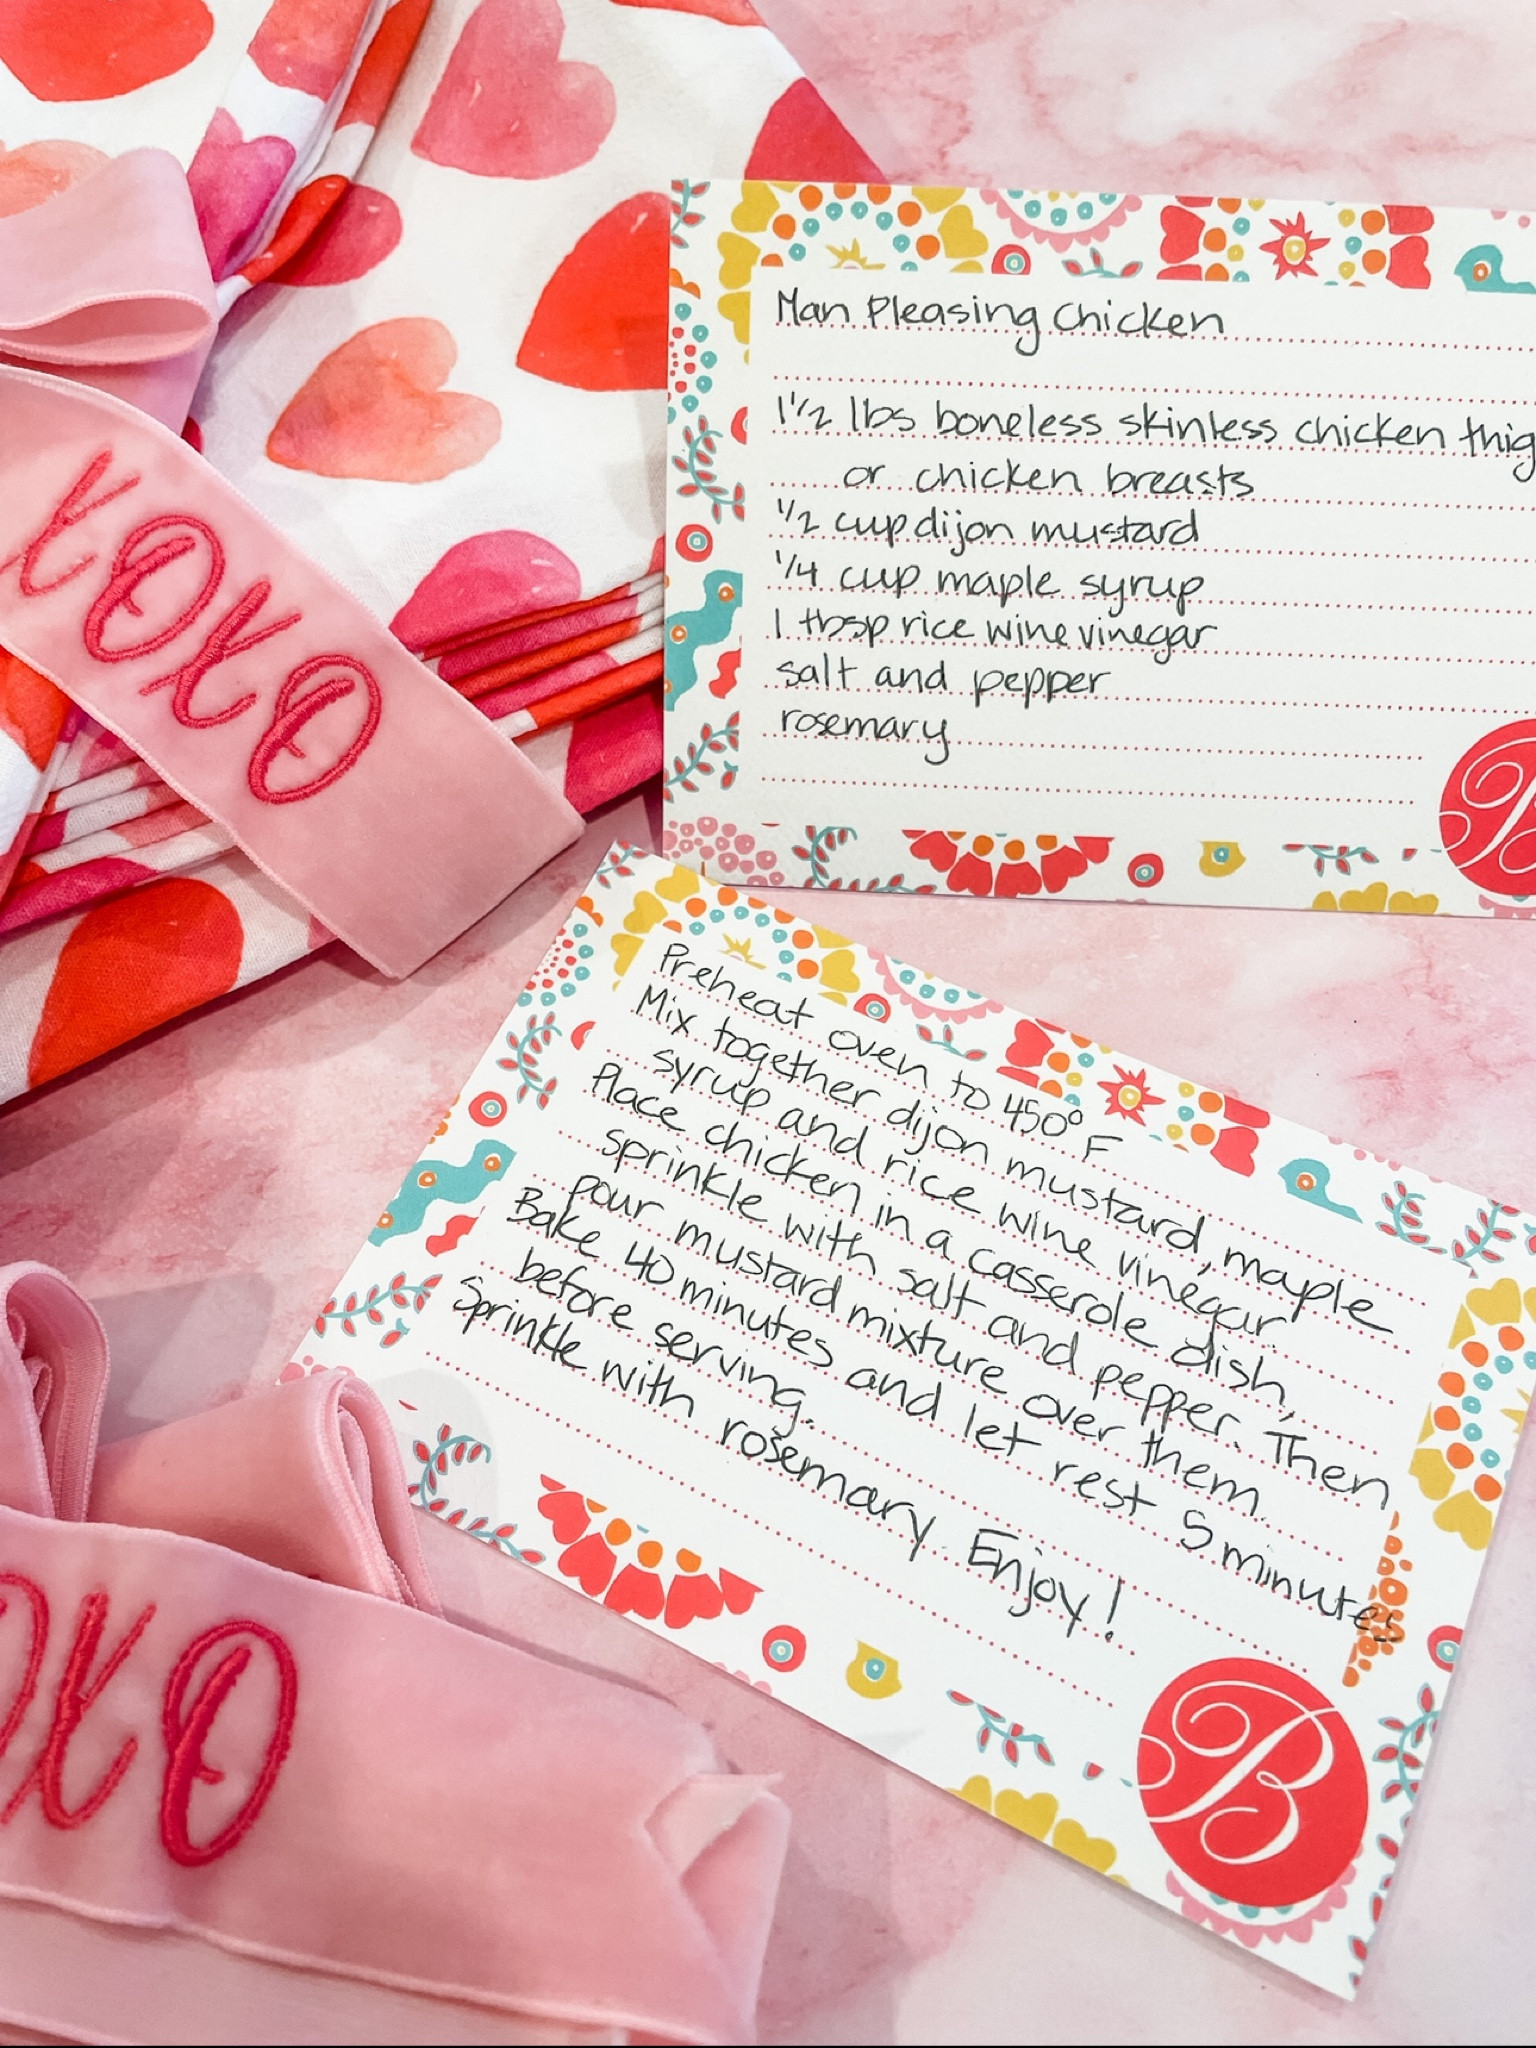 XOXO
Man Pleasing Chicken
1 1/2 lbs boneless skinless chicken thig
or chicken breasts
1/2 cup dijon mustard
1/4 cup maple syrup
1 tbsp rice wine vinegar
salt and pepper
rosemary
B
Preheat oven to 450° F
Mix together dijon mustard, maple
syrup and rice wine vinegar.
Place chicken in a casserole dish,
sprinkle with salt and pepper. Then
pour mustard mixture over them.
Bake 40 minutes and let rest 5 minutes
before serving.
Sprinkle with rosemary. Enjoy!
B
OXO